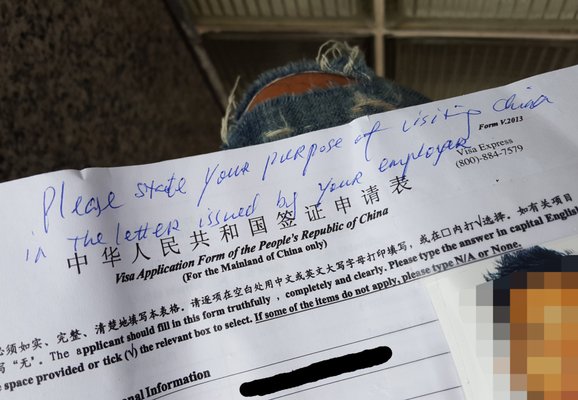 Please state your purpose of visiting China
in the letter issued by your employer
Form V.2013
Visa Express
(800)-884-7579
中华人民共和国签证申请表
Visa Application Form of the People's Republic of China
(For the Mainland of China only)
必须如实、完整、清楚地填写本表格。请逐项在空白处用中文或英文大写字母打印填写,或在□内打√选择。如有关项目
写“无”。The applicant should fill in this form truthfully, completely and clearly. Please type the answer in capital English
space provided or tick (√) the relevant box to select. If some of the items do not apply, please type N/A or None.
Information